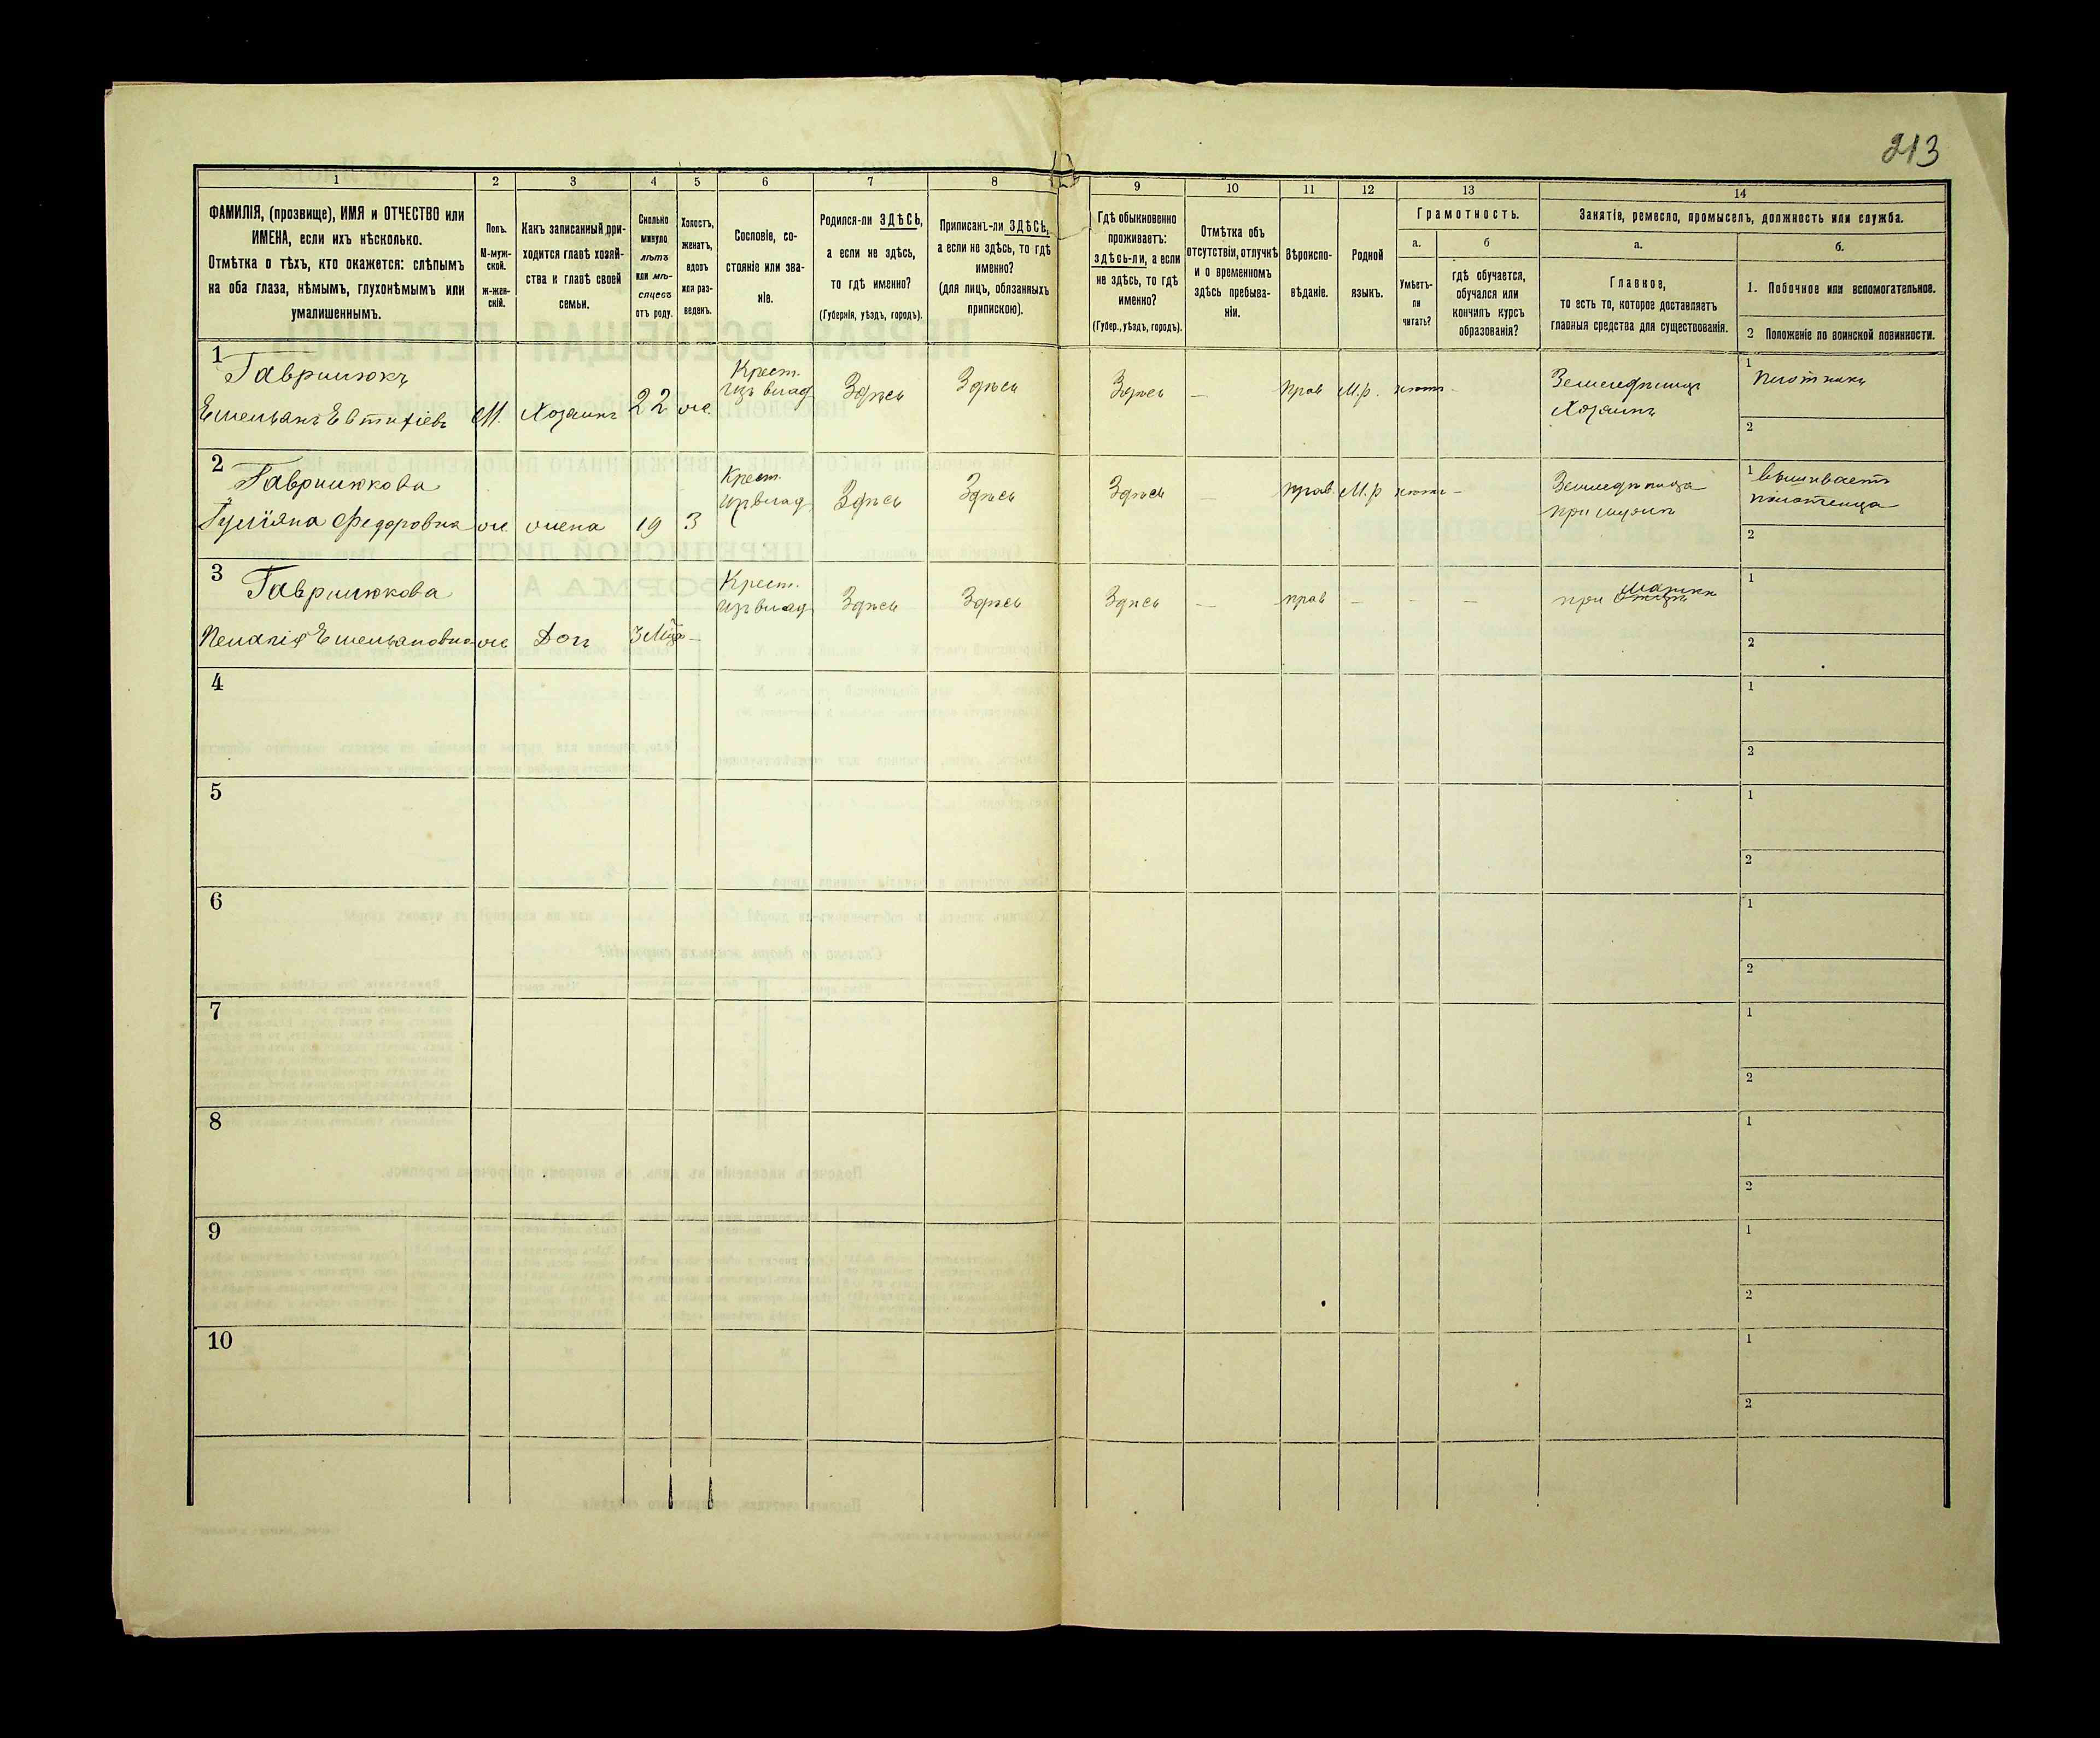 213
1 2 3 4 5 6 7 8 9 10 11 12 13 14
ФАМИЛІЯ, (прозвище), ИМЯ и ОТЧЕСТВО или
ИМЕНА, если ихъ нѣсколько.
Отмѣтка о тѣхъ, кто окажется: слѣпымъ
на оба глаза, нѣмымъ, глухонѣмымъ или
умалишеннымъ.
Полъ.
М-муж-
ской.
ж-жен-
скій.
Какъ записанный при-
ходится главѣ хозяй-
ства и главѣ своей
семьи.
Сколько
минуло
лѣтъ
или мѣ-
сяцевъ
отъ роду.
Холостъ,
женатъ,
вдовъ
или раз-
веденъ.
Сословіе, со-
стояніе или зва-
ніе.
Родился-ли ЗДѢСЬ,
а если не здѣсь,
то гдѣ именно?
(Губернія, уѣздъ, городъ).
Приписанъ-ли ЗДѢСЬ,
а если не здѣсь, то гдѣ
именно?
(для лицъ, обязанныхъ
припискою).
Гдѣ обыкновенно
проживаетъ:
здѣсь-ли, а если
не здѣсь, то гдѣ
именно?
(Губер., уѣздъ, городъ).
Отмѣтка объ
отсутствіи, отлучкѣ
и о временномъ
здѣсь пребыва-
ніи.
Вѣроиспо-
вѣданіе.
Родной
языкъ.
Грамотность.
а.
Умѣетъ-
ли
читать?
б
гдѣ обучается,
обучался или
кончилъ курсъ
образованія?
Занятія, ремесло, промыселъ, должность или служба.
а.
Главное,
то есть то, которое доставляетъ
главныя средства для существованія.
б.
1. Побочное или вспомогательное.
2 Положеніе по воинской повинности.
1 Гаврилюкъ
Емельянъ Евтифіевъ М. Хозяинъ 22 ж.
Крест.
изъ влад Здѣсь Здѣсь Здѣсь — прав М.р. нѣтъ —
Земледѣлецъ
Хозяинъ
1 плотникъ
2
2 Гаврилюкова
Федоровна ж. жена 19 З
Крест.
изъ влад Здѣсь Здѣсь Здѣсь — прав. М.р нѣтъ —
Земледѣлица
при мужѣ
1 вышиваетъ
полотенца
2
3 Гаврилюкова
Пелагія Емельяновна ж Доч 3 Мѣс —
Крест.
изъ влад Здѣсь Здѣсь Здѣсь — прав — — —
при матери
1
2
4
1
2
5
1
2
6
1
2
7
1
2
8
1
2
9
1
2
10
1
2